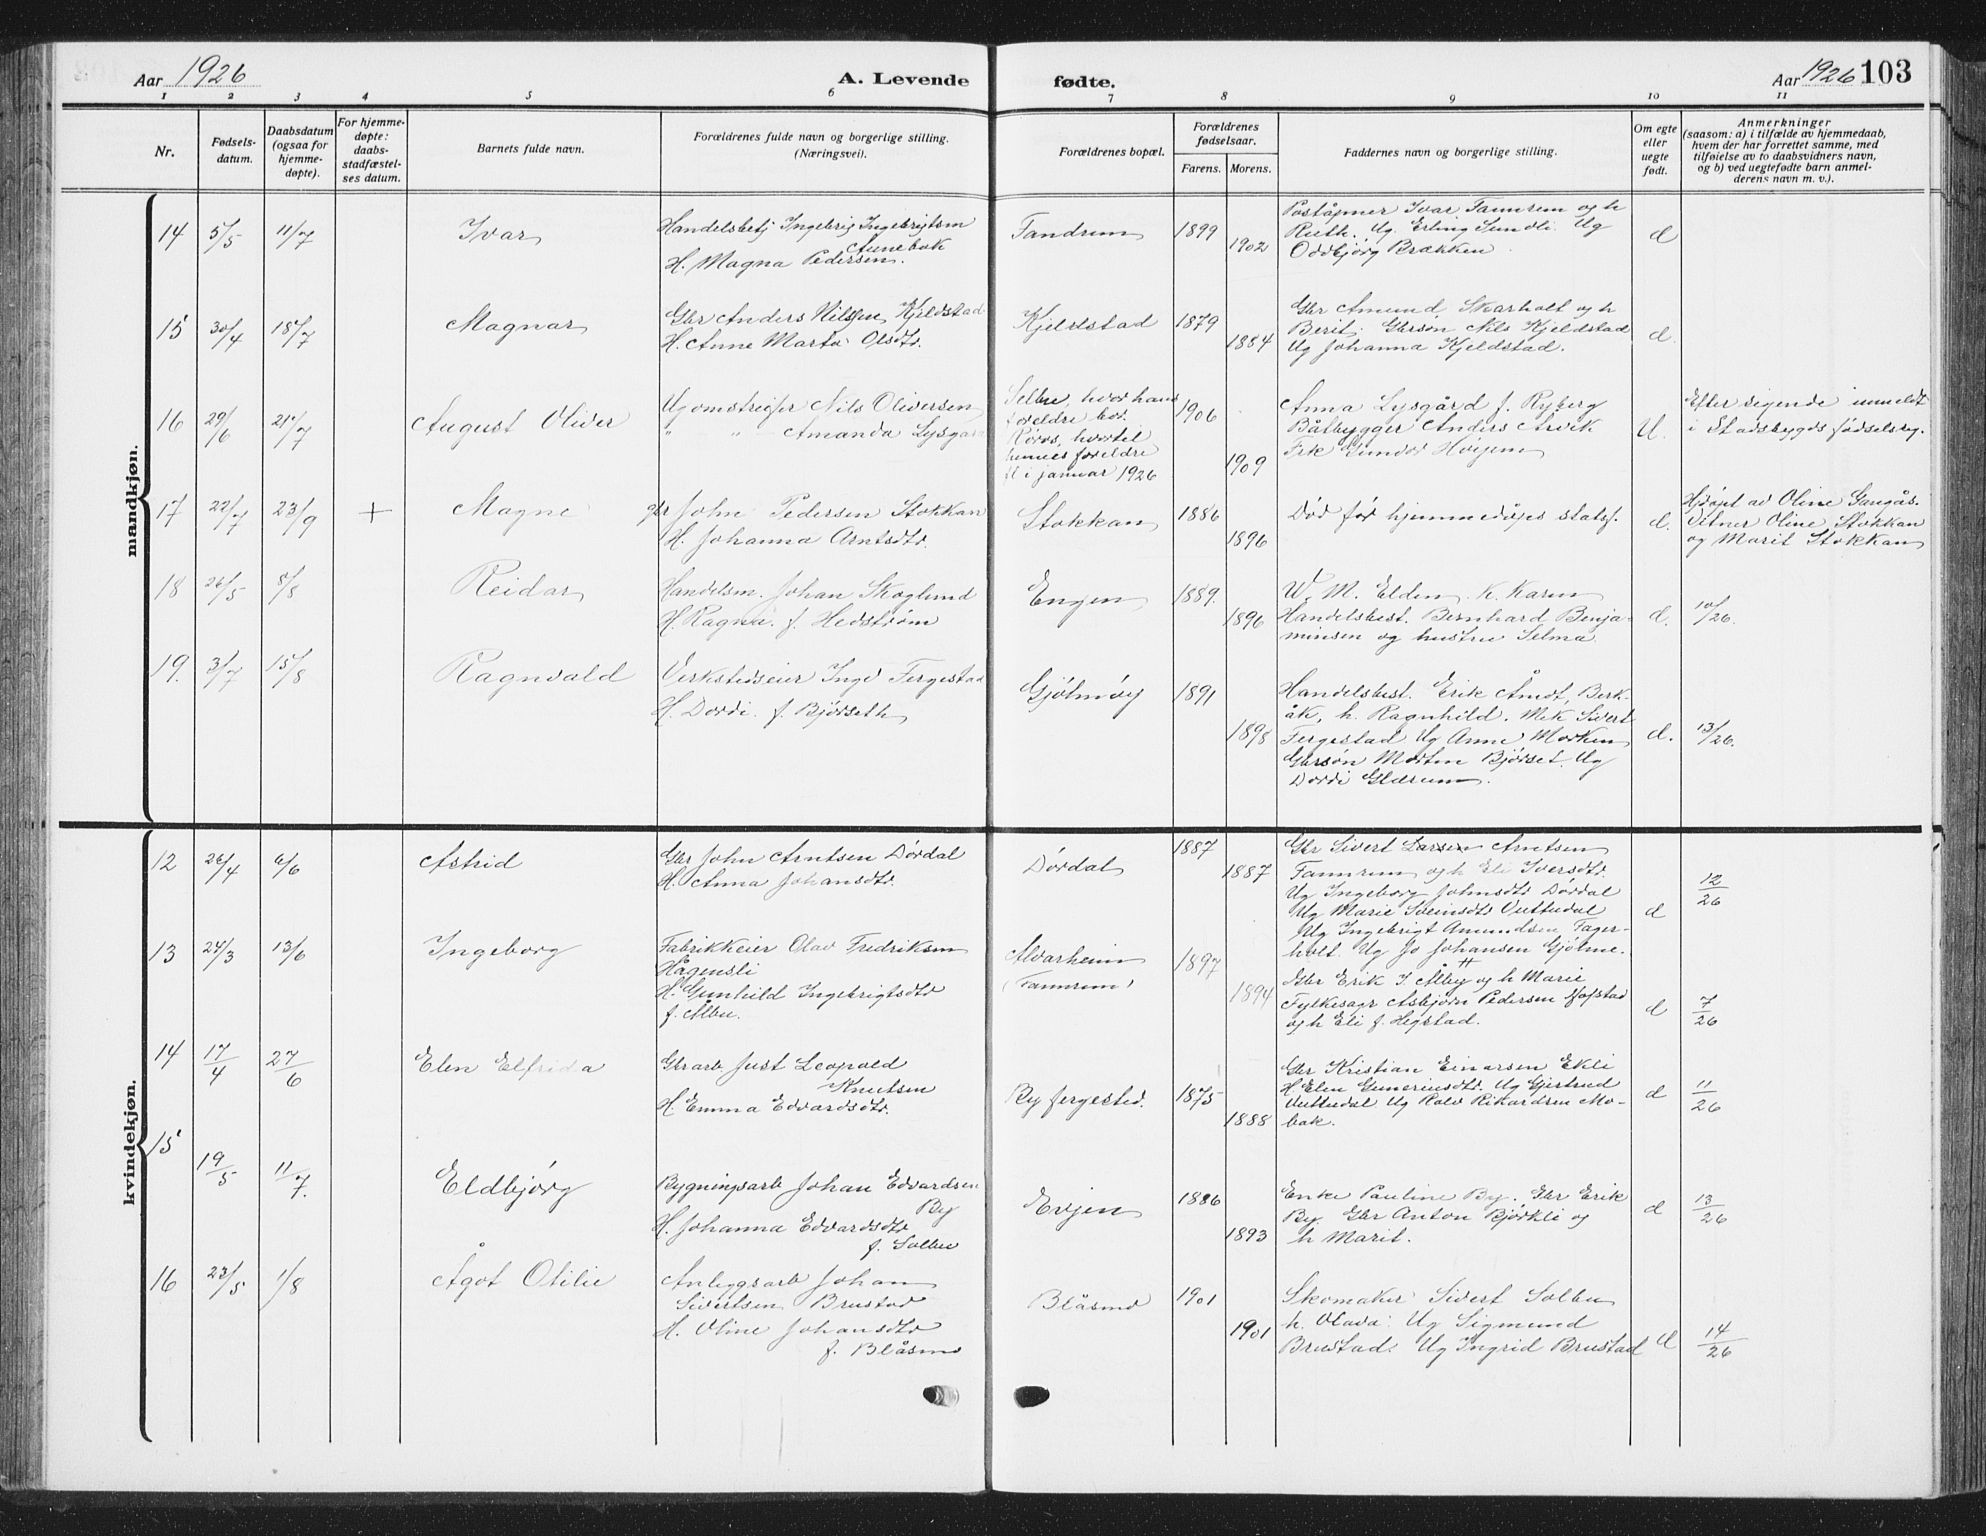 Aar 1926
A. Levende
fødte.
Aar 1926 103
1 2 3 4 5 6 7 8 9 10 11
Nr.
Fødsels-
datum.
Daabsdatum
(ogsaa for
hjemme-
døpte).
For hjemme-
døpte:
daabs-
stadfæstel-
ses datum.
Barnets fulde navn.
Forældrenes fulde navn og borgerlige stilling.
(Næringsvei).
Forældrenes bopæl.
Forældrenes
fødselsaar.
Farens. Morens.
Faddernes navn og borgerlige stilling.
Om egte
eller
uegte
født.
Anmerkninger
(saasom: a) i tilfælde av hjemmedaab,
hvem der har forrettet samme, med
tilføielse av to daabsvidners navn,
og b) ved uegtefødte barn anmel-
derens navn m. v.).
mandkjøn.
14 5/5 11/7 Ivar
Handelsbetj Ingebrig Ingebrigtsen
Aunebak
H. Magna Pedersen.
Fandrem 1899 1902
Poståpner Ivar Fannrem og h
Ruth. Ug. Erling Sundli. Ug
Oddbjørg Brækken.
d
15 30/4 18/7 Magnar
Gbr Anders Nilsen Kjeldstad
H. Anne Marta Olsdtr.
Kjeldstad 1879 1884
Gbr Amund Skarholt og h
Berit. Gbrsøn Nils Kjeldstad
Ug Johanna Kjeldstad.
d.
16 29/6 25/7 August Oliver
Ug omstreifer Nils Oliversen
" " Amanda Lysgård
Selbu, hvor hans
foreldre bor.
Røros, hvortil
hennes foreldre
fl i januar 1926
1906 1909
Anna Lysgård f. Ryberg
Båtbygger Anders Arvik
Frk Gunvor Høijem
U.
Efter sigende innmeldt
i Stadsbygds fødselsreg.
17 22/7 23/9 + Magne
gbr John Pedersen Stokkan
H. Johanna Arntsdtr.
Stokkan 1886 1896
Død før hjemmedåpes statsf.
d.
Hjdøpt av Oline Gangås.
Vitner Oline Stokkan
og Marit Stokkan
18 26/5 8/8 Reidar
Handelsm. Johan Skoglund
H. Ragna. f. Hedstrøm
Engen 1889. 1896
W. M. Elden. K. Karen
Handelsbest. Bernhard Benja-
minsen og hustru Selma
d. 10/26.
19. 3/7 15/8 Ragnvald
Verkstedseier Ingv Fergestad
H. Dordi. f. Bjørseth
Gjølmøy 1891 1898
Handelsbest. Erik Åmot, Berk-
åk, h. Ragnhild. Mek Sivert
Fergestad Ug Anne Morken
Gbrsøn Morten Bjørset. Ug
Dordi Glærum.
d. 13/26.
kvindekjøn.
12 26/4 6/6 Astrid
Gbr John Arntsen Dørdal
H. Anna Johansdtr.
Dørdal 1887 1887
Gbr Sivert Larsen Arntsen
Fannrem og h Eli Iversdtr.
Ug Ingeborg Johnsdtr Dørdal
Ug Marie Sveinsdtr Vuttudal
Ug Ingebrigt Amundsen Fager-
holt. Ug Jo Johansen Gjølme.
d 12/26
13 24/3 13/6 Ingeborg
Fabrikkeier Olav Fredriksen
Hågensli
H. Gunhild Ingebrigtsdtr
f. Ålbu.
Alvarheim
(Fannrem)
1897 1894
Gbr Erik I. Ålby og h Marie
Fylkesagr Asbjørn Pedersen Hofstad
og h Eli f. Hegstad.
d 7/26
14 17/4 27/6 Elen Elfrida
Gbrarb Just Leopold
Knutsen
H. Emma Edvardsdtr.
By fergested. 1875 1888
Gbr Kristian Einarsen Ekli
H Elen Guneriusdtr. Ug Gjertrud
Vuttudal Ug Rolv Rikardsen Mo-
bak.
d 11/26
15 19/5 11/7. Eldbjørg
Bygningsarb Johan Edvardsen
By
H. Johanna Edvardsdtr
f. Solbu
Evjen 1886 1893
Enke Pauline By. Gbr Erik
By. Gbr Anton Bjørkli og
h Marit.
d 13/26
16 23/5 1/8 Ågot Otilie
Anleggsarb Johan
Sivertsen Brustad
H. Oline Johansdtr
f. Blåsmo
Blåsmo 1901 1901
Skomaker Sivert Solbu
h. Olava. Ug Sigmund
Brustad. Ug Ingrid Brustad
d 14/26